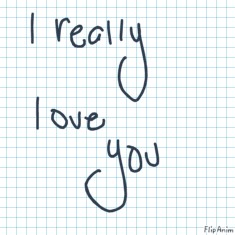 I really
love
you
FlipAnim